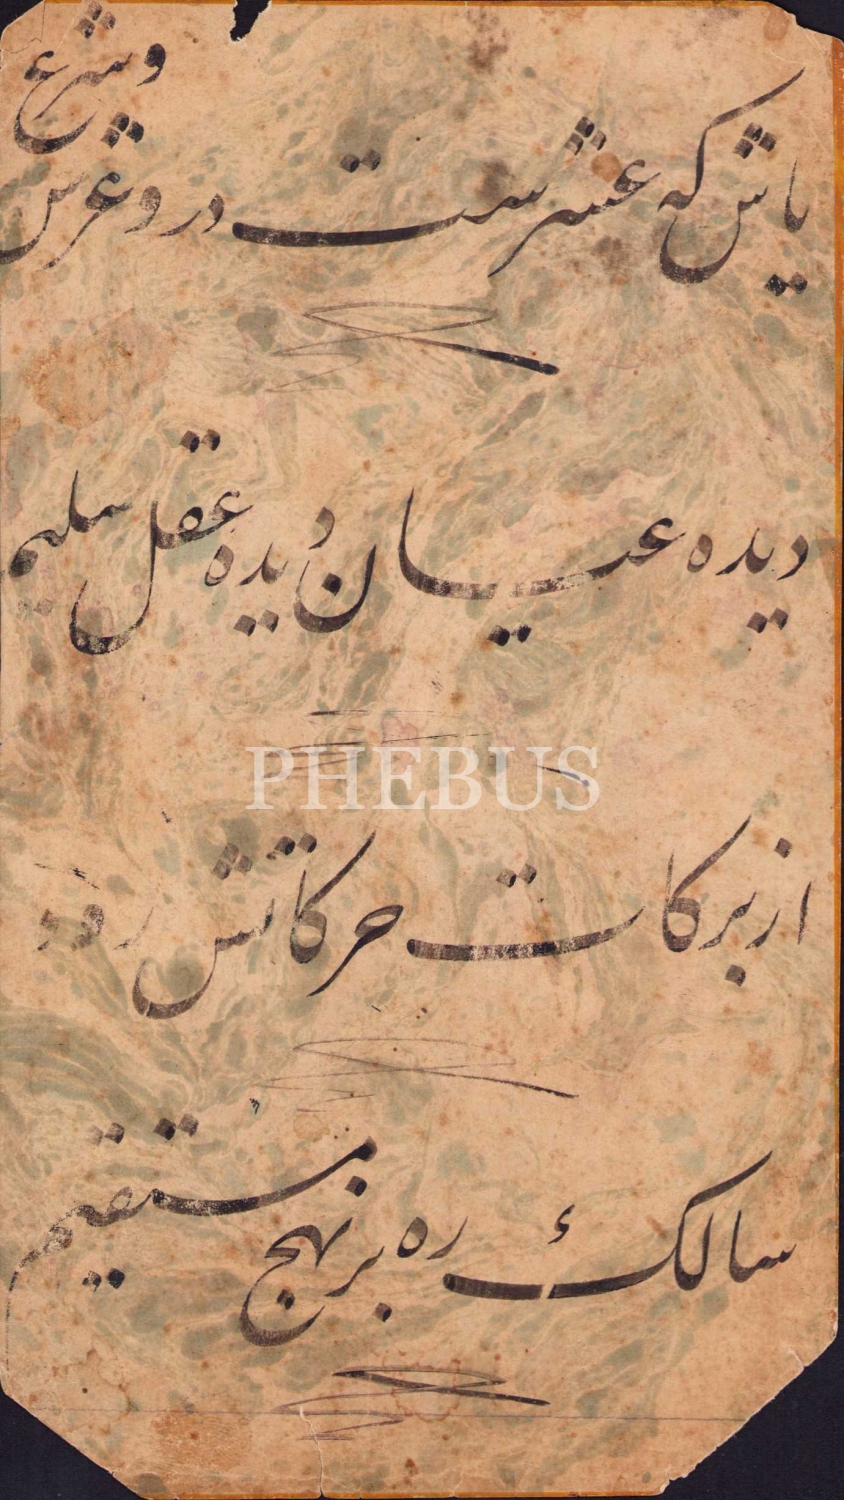 یاش که عشرست درو عرش و شرع
دیده عیان دیده عقل سلیم
PHEBUS
از برکات حرکاتش رود
سالکٔ ره بر نهج مستقیم